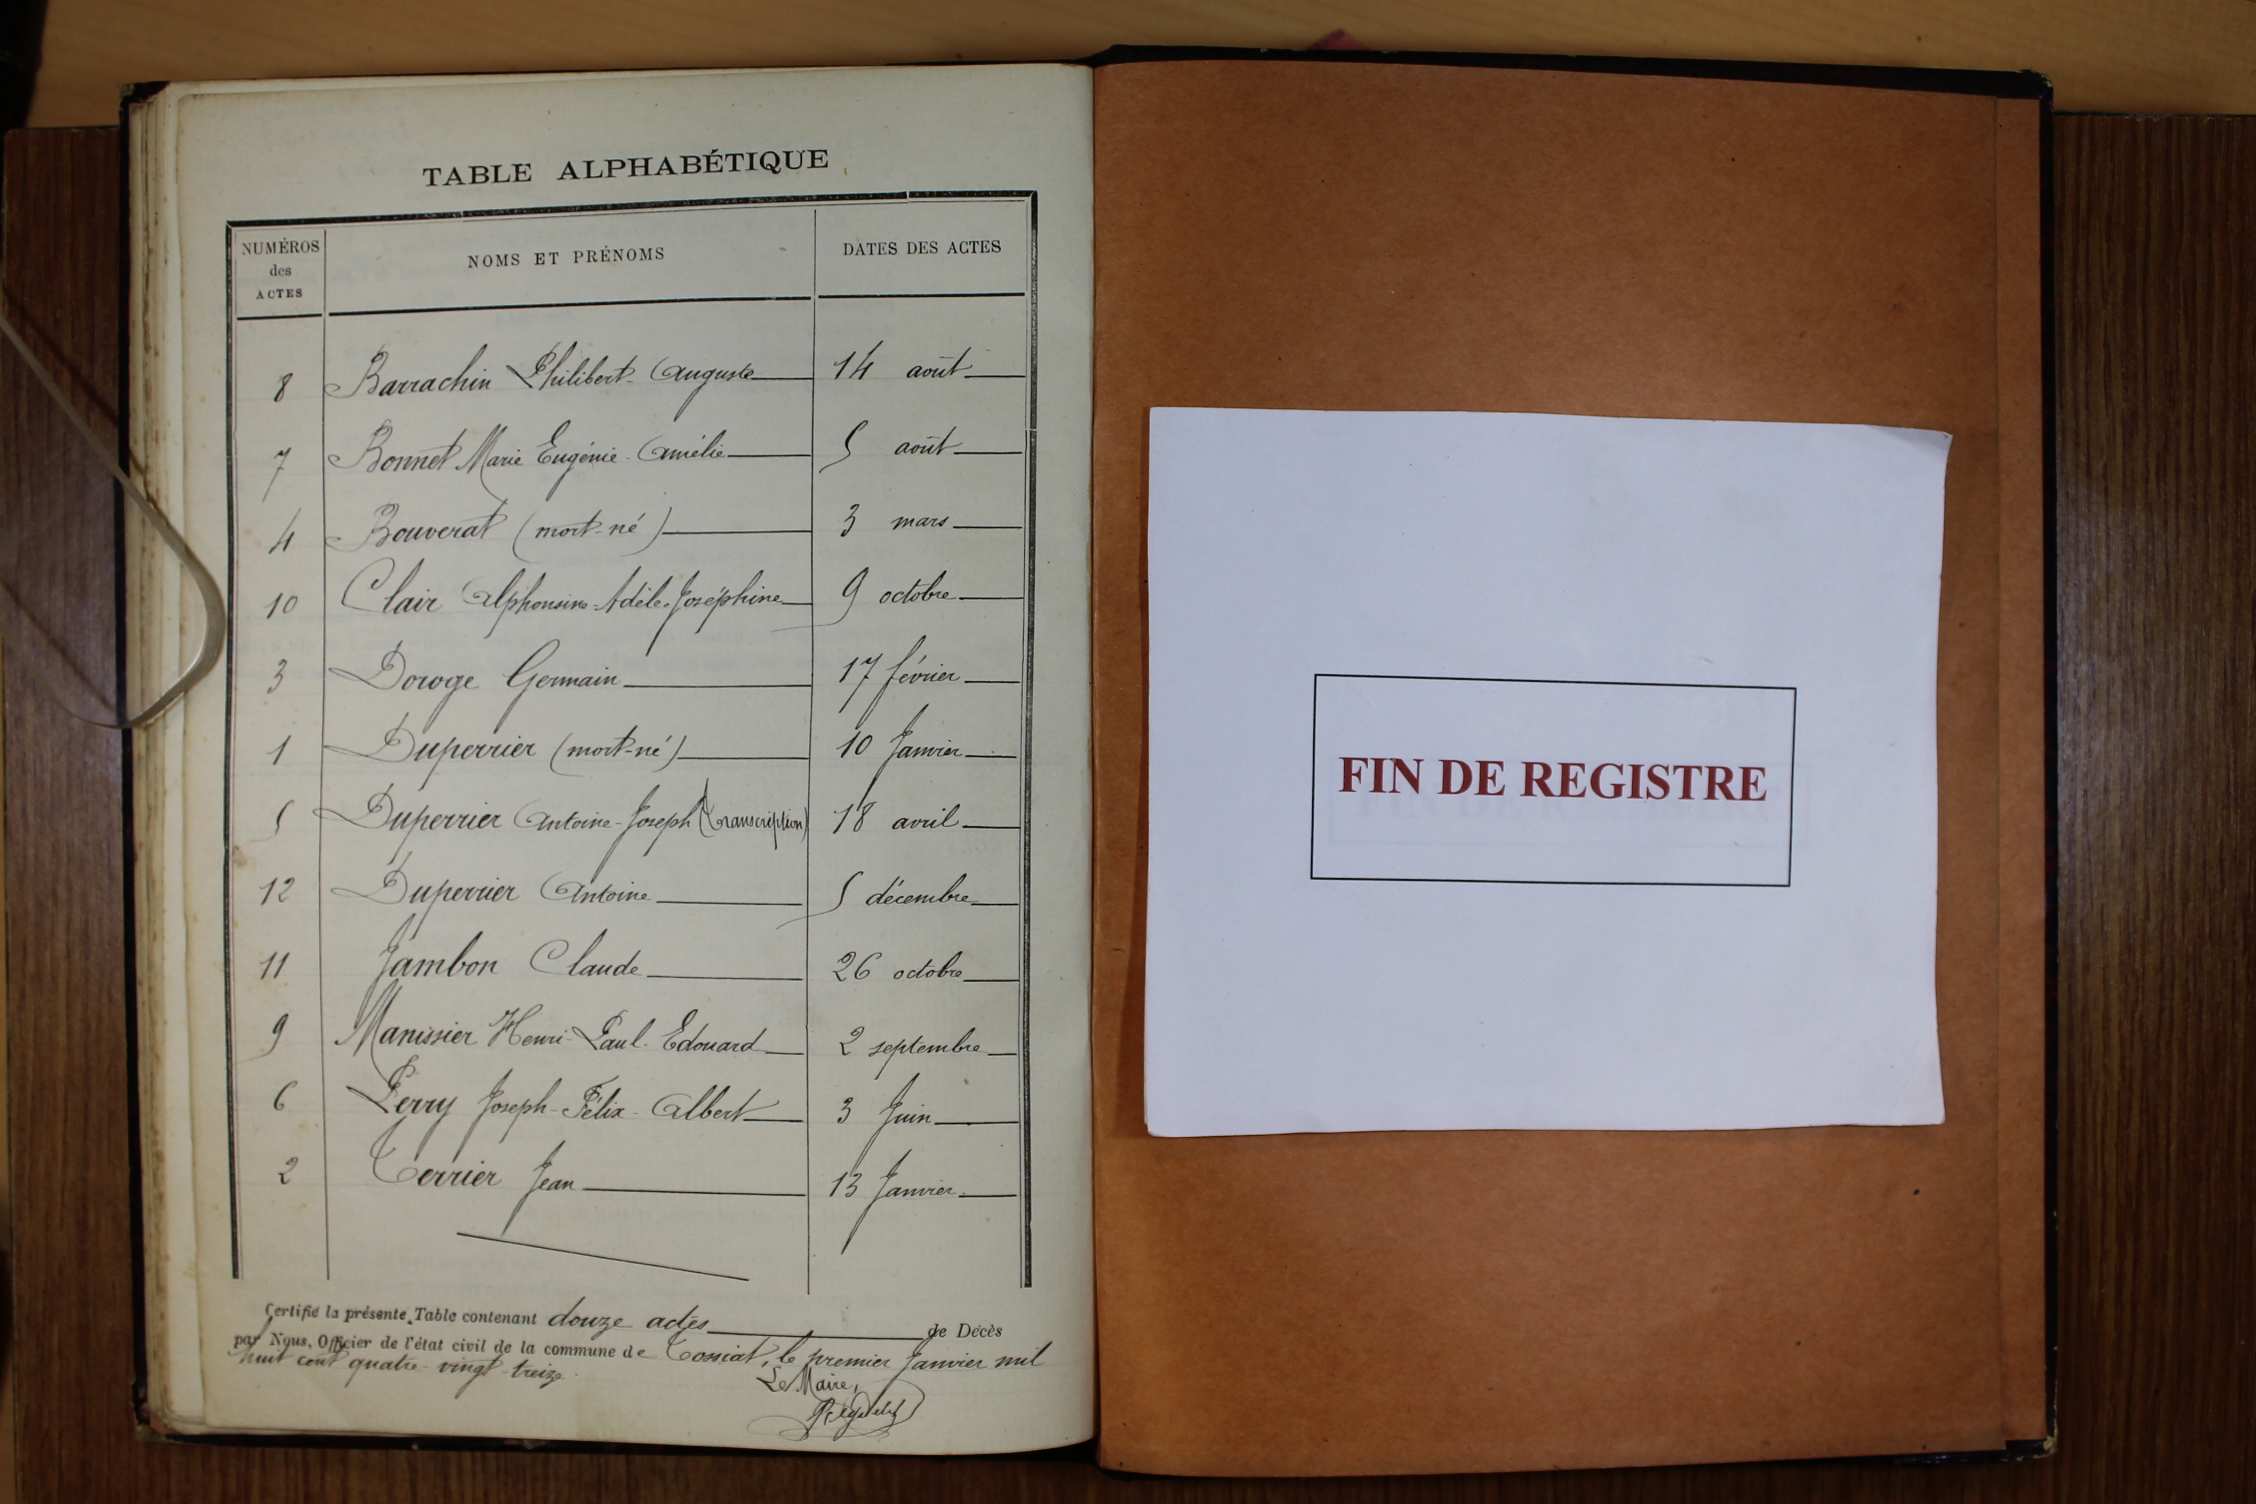 TABLE ALPHABÉTIQUE
NUMÉROS
des
ACTES
NOMS ET PRÉNOMS
DATES DES ACTES
8 Barrachin Philibert-Auguste 14 août
7 Bonnet Marie Eugénie-Amélie 5 août
4 Bouverat (mort-né) 3 mars
10 Clair Alphonsine-Adèle-Joséphine 9 octobre
3 Doroge Germain 17 février
1 Duperrier (mort-né) 10 Janvier
5 Duperrier Antoine-Joseph (transcription) 18 avril
12 Duperrier Antoine 5 décembre
11 Jambon Claude 26 octobre
9 Manissier Henri-Paul-Edouard 2 septembre
6 Perry Joseph-Félix-Albert 3 Juin
2 Terrier Jean 13 Janvier
Certifié la présente Table contenant douze actes de Décès
par Nous, Officier de l'état civil de la commune de Tossiat, le premier Janvier mil
huit cent quatre-vingt-treize.
Le Maire,
FIN DE REGISTRE